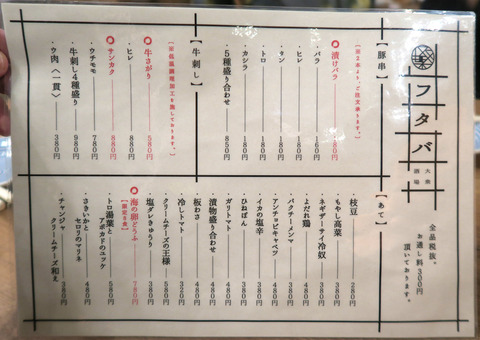 フタバ
大衆
酒場
全品税抜。
お通し料300円
頂いております。
【豚串】
(※2本より、ご注文承ります。)
漬けバラ 180円
・バラ 160円
・ヒレ 180円
・タン 180円
・トロ 180円
・カシラ 180円
・5種盛り合わせ 850円
【牛刺し】
(※低温調理加工を施しております。)
牛さがり 580円
・ヒレ 880円
サンカク 880円
・ウチモモ 780円
・牛刺し4種盛り 980円
・ウ肉〈一貫〉 380円
【あて】
・枝豆 280円
・もやし高菜 380円
・ネギザーサイ冷奴 380円
・よだれ鶏 480円
・パクチーメンマ 380円
・アンチョビキャベツ 480円
・イカの塩辛 380円
・ひねぽん 380円
・ガリトマト 380円
・漬物盛り合わせ 480円
・板わさ 480円
・冷しトマト 320円
・クリームチーズの王様 580円
・塩ダレきゅうり 380円
海の卵どうふ 780円
【限定5食】
・トロ湯葉と
アボカドのユッケ 580円
・さきいかと
セロリのマリネ 480円
・チャンジャ
クリームチーズ和え 380円